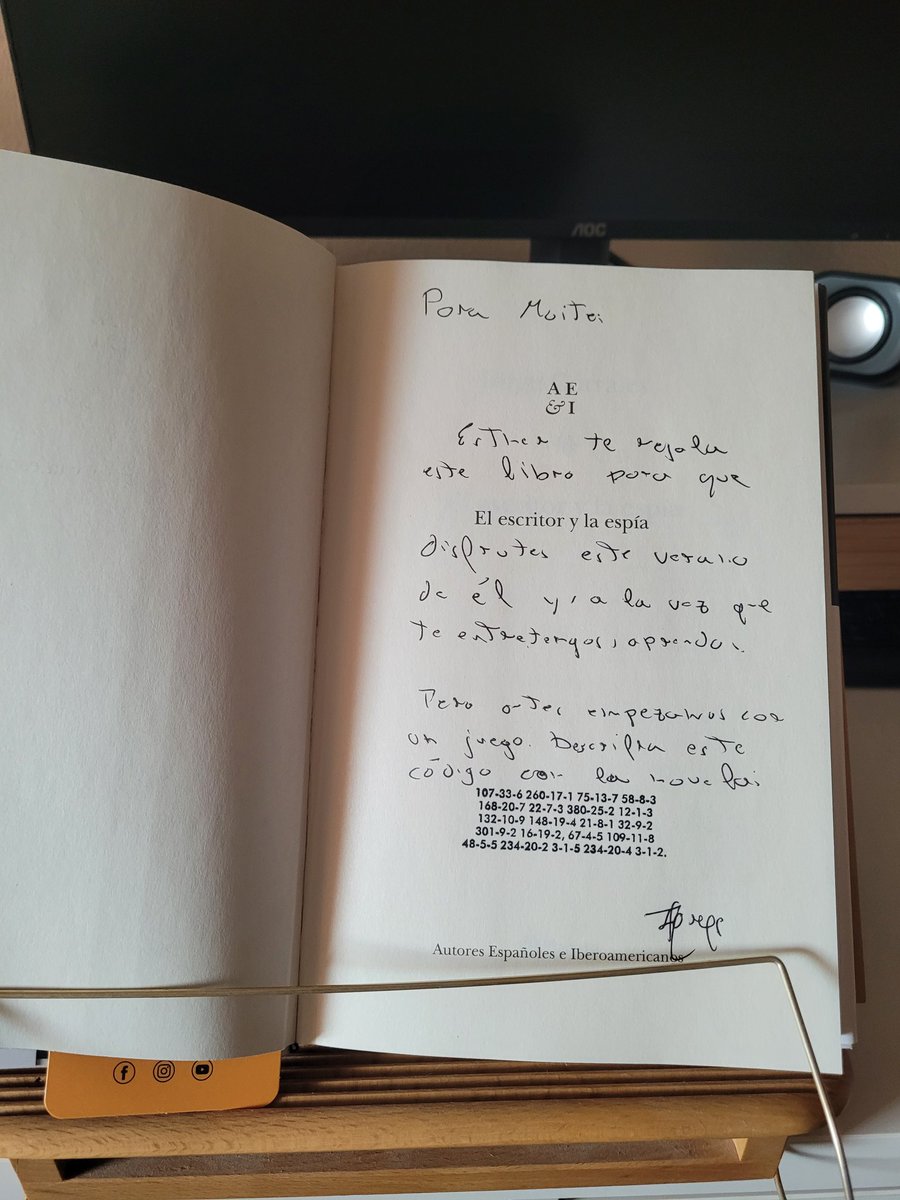 AOC
Para Maite:
A E
& I
Esther te regala
este libro para que
El escritor y la espía
disfrutes este verano
de él y, a la vez que
te entretengas, aprendas.
Pero antes empezamos con
un juego. Descifra este
código con la novela:
107-33-6 260-17-1 75-13-7 58-8-3
168-20-7 22-7-3 380-25-2 12-1-3
132-10-9 148-19-4 21-8-1 32-9-2
301-9-2 16-19-2, 67-4-5 109-11-8
48-5-5 234-20-2 3-1-5 234-20-4 3-1-2.
Autores Españoles e Iberoamericanos